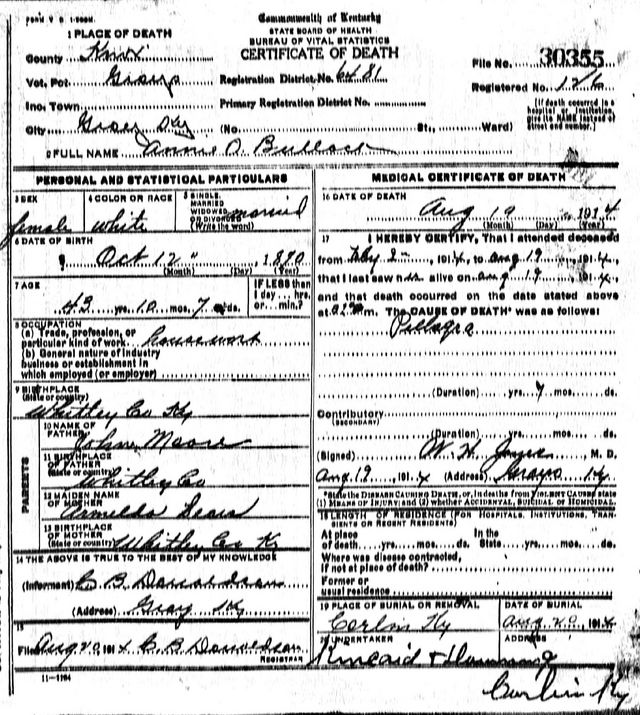 FORM V S 1-200M.
Commonwealth of Kentucky
STATE BOARD OF HEALTH
BUREAU OF VITAL STATISTICS
CERTIFICATE OF DEATH
1 PLACE OF DEATH
County Knox
Vot. Pct Grays
Inc. Town
City Gray Ky (No. St., Ward)
Registration District No. 6481
Primary Registration District No.
File No. 30355
Registered No. 126
[If death occurred in a hospital or institution, give its NAME instead of street and number.]
2 FULL NAME Annie O. Bullock
PERSONAL AND STATISTICAL PARTICULARS
3 SEX female
4 COLOR OR RACE white
5 SINGLE, MARRIED WIDOWED OR DIVORCED (Write the word) married
6 DATE OF BIRTH
Oct 12 1890
(Month) (Day) (Year)
7 AGE
43 yrs. 10 mos. 7 ds.
IF LESS than 1 day.... hrs. or.... min.?
8 OCCUPATION
(a) Trade, profession, or particular kind of work housework
(b) General nature of industry business or establishment in which employed (or employer)
9 BIRTHPLACE
(State or country)
Whitley Co Ky
PARENTS
10 NAME OF FATHER John Moore
11 BIRTHPLACE OF FATHER Whitley Co
12 MAIDEN NAME OF MOTHER
13 BIRTHPLACE OF MOTHER
(State or country) Whitley Co K
14 THE ABOVE IS TRUE TO THE BEST OF MY KNOWLEDGE
(Informant) C B Donaldson
(Address) Gray Ky
15
Filed Aug 20 1914 C. B. Donaldson
REGISTRAR
11-1184
MEDICAL CERTIFICATE OF DEATH
16 DATE OF DEATH
Aug 19 1914
(Month) (Day) (Year)
17 I HEREBY CERTIFY, That I attended deceased
from 2 1914, to Aug 19 1914,
that I last saw alive on Aug 19 1914
and that death occurred on the date stated above
at m. The CAUSE OF DEATH* was as follows:
Pellagra
(Duration) yrs. 7 mos. ds.
Contributory
(SECONDARY)
(Duration) yrs. mos. ds.
(Signed) W. H. M. D.
Aug 19, 1914 (Address) Grays Ky
*State the DISEASE CAUSING DEATH, or, in deaths from VIOLENT CAUSES state (1) MEANS OF INJURY; and (2) whether ACCIDENTAL, SUICIDAL or HOMICIDAL.
18 LENGTH OF RESIDENCE (FOR HOSPITALS, INSTITUTIONS, TRANSIENTS OR RECENT RESIDENTS)
At place of death.... yrs.... mos.... ds. In the State.... yrs.... mos.... ds.
Where was disease contracted,
If not at place of death?
Former or
usual residence
19 PLACE OF BURIAL OR REMOVAL
Corbin Ky
DATE OF BURIAL
Aug 20, 1914
20 UNDERTAKER
Kincaid &
ADDRESS
Corbin Ky